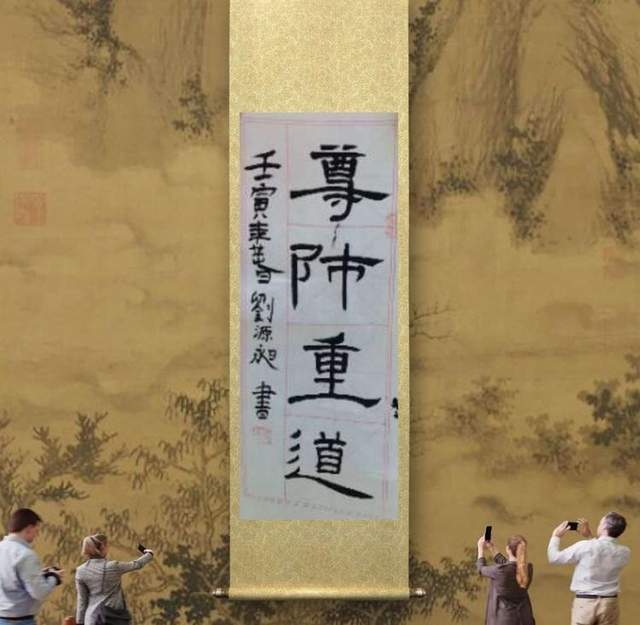 尊師重道
壬寅年春劉源昶書